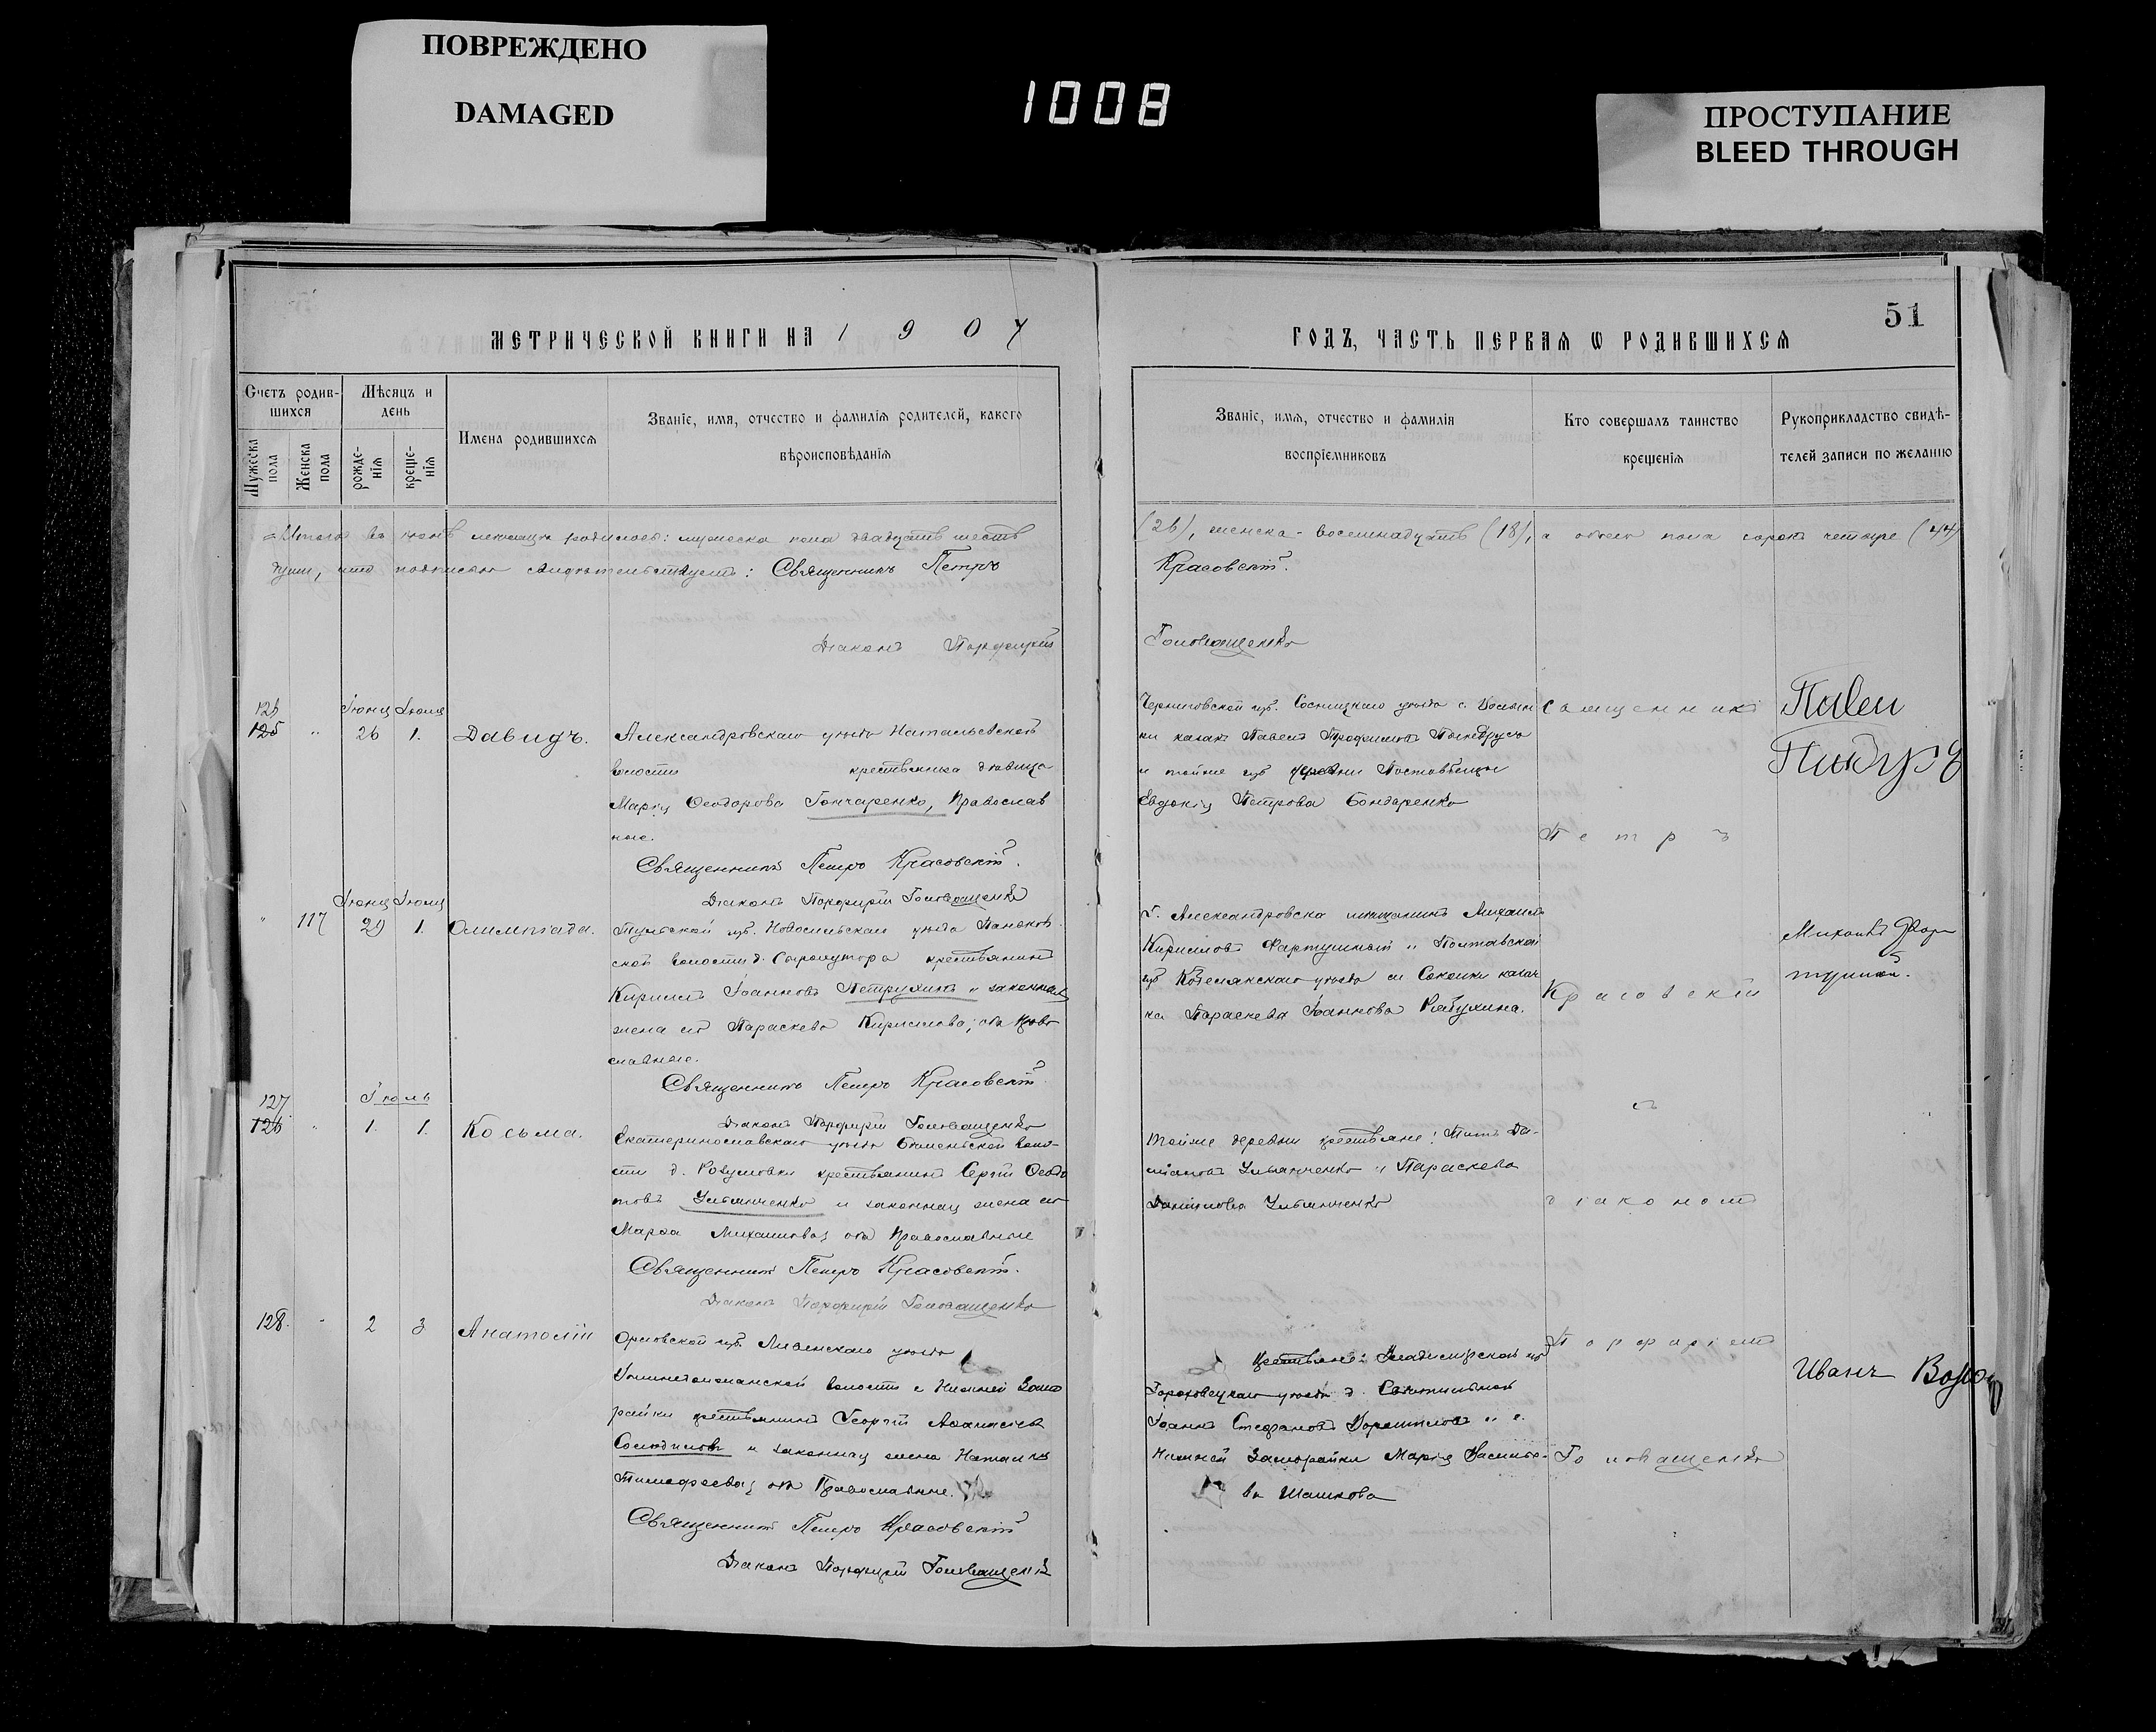 ПОВРЕЖДЕНО
DAMAGED
1008
ПРОСТУПАНИЕ
BLEED THROUGH
МЕТРИЧЕСКОЙ КНИГИ НА 1907
ГОДЪ, ЧАСТЬ ПЕРВАЯ Ѡ РОДИВШИХСЯ
51
Счетъ родив-
шихся
Мужеска пола
Женска пола
Мѣсяцъ и
день
рожде-
нія
креще-
нія
Имена родившихся
Званіе, имя, отчество и фамилія родителей, какого
вѣроисповѣданія
Званіе, имя, отчество и фамилія
воспріемниковъ
Кто совершалъ таинство
крещенія
Рукоприкладство свидѣ-
телей записи по желанію
Итого въ родилось: мужеска пола двадцать шесть
(26), женска - восемнадцать (18), а обоего пола сорокъ четыре (44)
что подписью свидѣтельствуемъ: Священникъ Петръ
Красовскій.
Діаконъ Порфирій
Головащенко
126
125 " Іюня 26 Іюля 1. Давидъ.
Александровскаго уѣзда Натальевской
волости крестьянка дѣвица
Марія Ѳеодорова Гончаренко, Православ
ные.
Священникъ Петръ Красовскій.
Діаконъ Порфирій Головащенко
Черниговской губ. Сосницкаго уѣзда с.
казакъ Павелъ Трофимовъ
и той же губ. деревни
Евдокія Петрова Бондаренко
Священникъ
Петръ
Павел
" 117 Іюня 29 Іюля 1. Олимпіада.
Тульской губ. Новосильскаго уѣзда
ской волости д. крестьянинъ
Кириллъ Іоанновъ Петрухинъ и законная
жена его Параскева Кириллова; оба Право
славные.
Священникъ Петръ Красовскій.
Діаконъ Порфирій Головащенко
Г. Александровска мѣщанинъ Михаилъ
Кирилловъ Фартушный и Полтавской
губ. Кобелякскаго уѣзда с. Соколки казач
ка Параскева Іоаннова Рябухина.
Красовскій
Михаилъ Фар
тушной.
127
126 " Іюль 1. 1. Косьма.
Екатеринославскаго уѣзда воло-
сти д. Разумовки крестьянинъ Сергій Ѳеодо
товъ Ульянченко и законная жена его
Марѳа Михаилова; оба Православные
Священникъ Петръ Красовскій.
Діаконъ Порфирій Головащенко
Той же деревни крестьяне: Титъ Да-
міановъ Ульянченко и Параскева
Даніилова Ульянченко
съ
діакономъ
128. " 2 3 Анатолій
Орловской губ. Ливенскаго уѣзда
волости с. Нижней
крестьянинъ Георгій Аѳанасіевъ
Солодиловъ и законная жена Наталія
Тимоѳеева; оба Православные.
Священникъ Петръ Красовскій
Діаконъ Порфирій Головащенко
Крестьяне: Владимірской губ.
Гороховецкаго уѣзда д.
Іоаннъ Стефановъ и с.
Нижней Марія Василіе-
ва Шашкова
Порфиріемъ
Головащенко
Иванъ